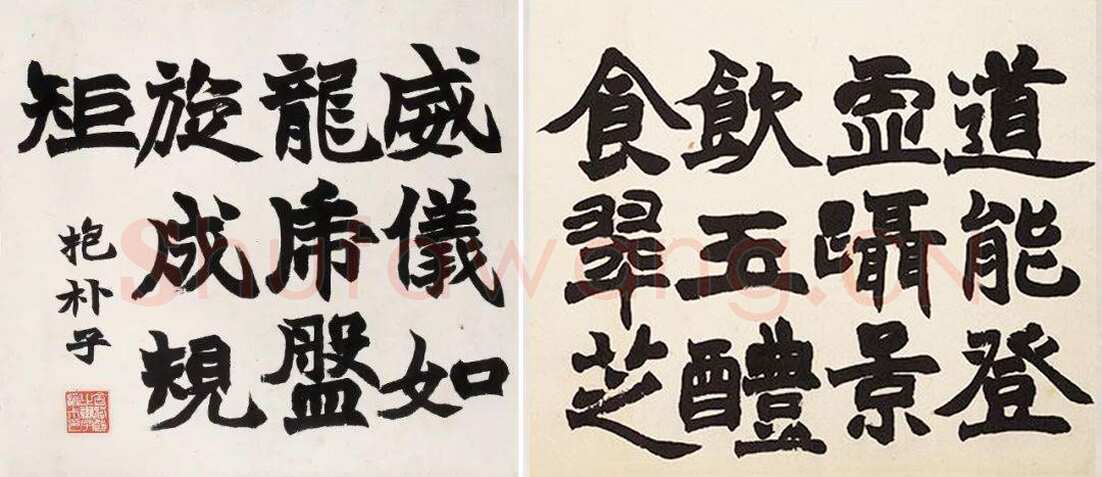 道能登
虛躡景
飲五醴
食翠芝
威儀如
龍虎盤
旋成規
矩
抱朴子
Shufawang.CN